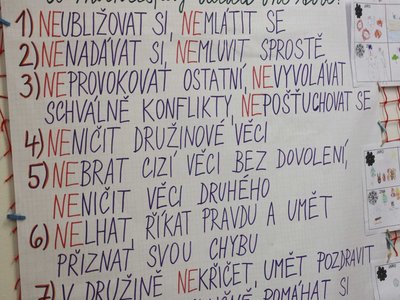 1) NEUBLIŽOVAT SI, NEMLÁTIT SE
2) NENADÁVAT SI, NEMLUVIT SPROSTĚ
3) NEPROVOKOVAT OSTATNÍ, NEVYVOLÁVAT
SCHVÁLNĚ KONFLIKTY, NEPOŠŤUCHOVAT SE
4) NENIČIT DRUŽINOVÉ VĚCI
5) NEBRAT CIZÍ VĚCI BEZ DOVOLENÍ,
NENIČIT VĚCI DRUHÉHO
6) NELHAT, ŘÍKAT PRAVDU A UMĚT
PŘIZNAT SVOU CHYBU
7) V DRUŽINĚ NEKŘIČET, UMĚT POZDRAVIT
POMÁHAT SI